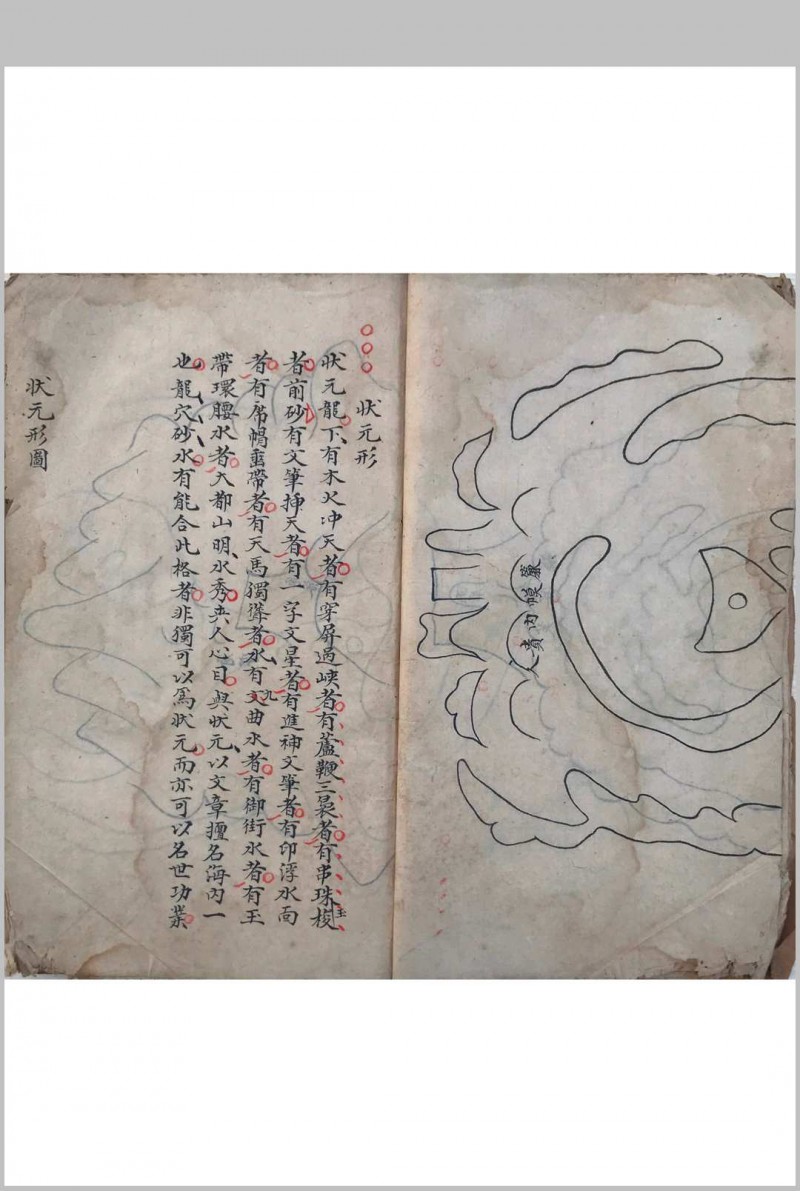 簾幙內貴人
狀元形
狀元龍下有木火冲天者有穿屏過峡者有蘆鞭三裊者有串珠梭
玉
者前砂有文筆揷天者有一字文星者有進神文筆者有印浮水面
者有席帽垂帶者有天馬獨聳者水有文曲水者有御街水者有玉
九
帶環腰水者大都山明水秀夹人心目與狀元以文章擅名海內一
也龍穴砂水有能合此格者非獨可以爲狀元而亦可以名世功業
狀元形圖